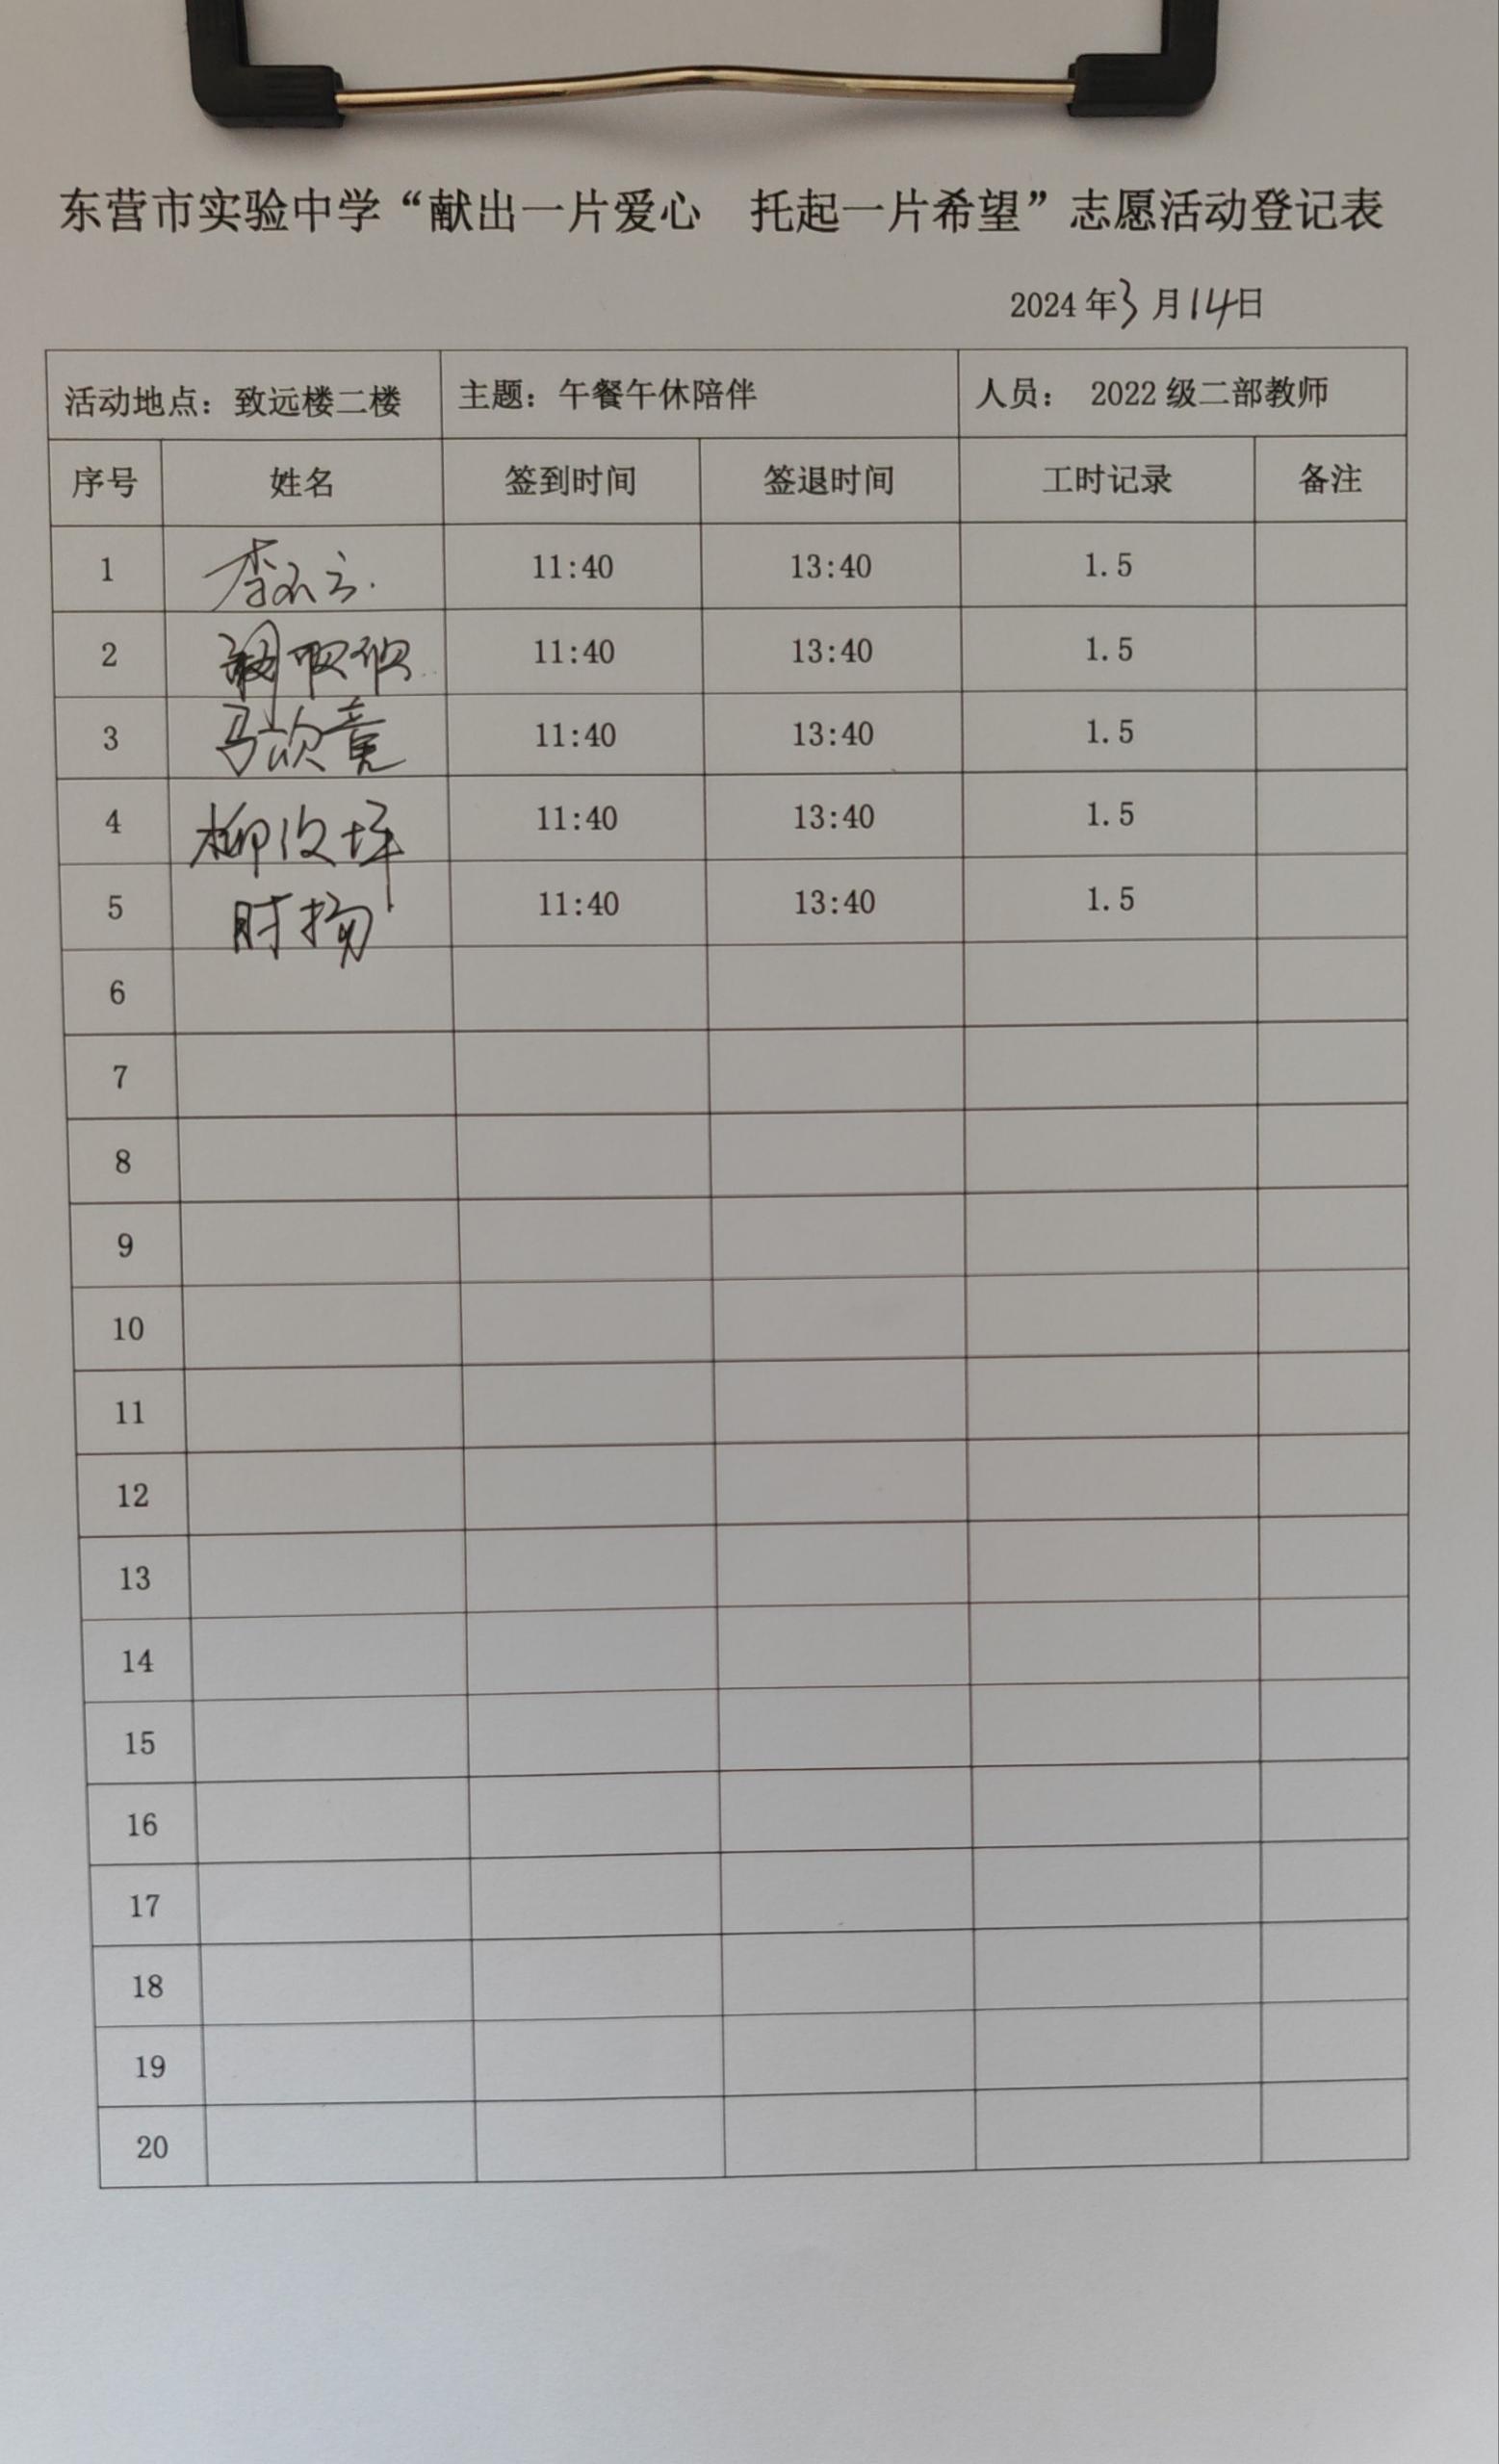 东营市实验中学“献出一片爱心 托起一片希望”志愿活动登记表
2024年3月14日
活动地点：致远楼二楼 主题：午餐午休陪伴 人员： 2022级二部教师
序号 姓名 签到时间 签退时间 工时记录 备注
1 李 11:40 13:40 1.5
2 11:40 13:40 1.5
3 马欣竟 11:40 13:40 1.5
4 柳 11:40 13:40 1.5
5 时扬 11:40 13:40 1.5
6
7
8
9
10
11
12
13
14
15
16
17
18
19
20